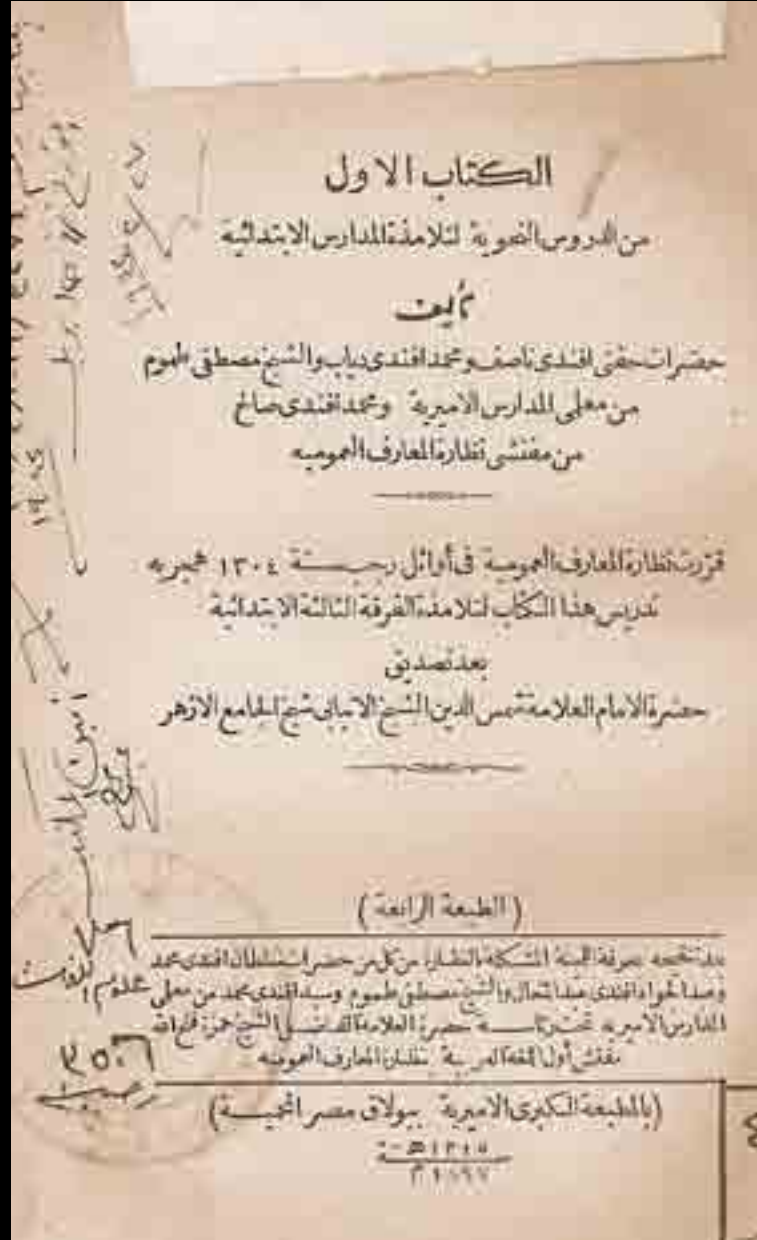 الكتاب الاول
من الدروس النحوية لتلامذة المدارس الابتدائية
تأليف
حضرات حفنى افندى ناصف ومحمد افندى دياب والشيخ مصطفى طموم
من معلمى المدارس الاميرية ومحمد افندى صالح
من مفتشى نظارة المعارف العموميه
قررت نظارة المعارف العمومية فى أوائل رجب سنة ١٣٠٤ هجريه
تدريس هذا الكتاب لتلامذة الفرقة الثالثة الابتدائية
بعد تصديق
حضرة الامام العلامة شمس الدين الشيخ الانبابى شيخ الجامع الازهر
(الطبعة الرابعة)
بمعرفة اللجنة المشكلة بالنظارة من كل من حضرات سلطان افندى محمد
وعبد الجواد افندى عبد المتعال والشيخ مصطفى طموم وسيد افندى محمد من معلمى
المدارس الاميريه تحت رئاسة حضرة العلامة الفاضل الشيخ حمزة فتح الله
مفتش أول اللغة العربية بنظارة المعارف العموميه
(بالمطبعة الكبرى الاميرية ببولاق مصر المحمية)
سنة ١٣١٥ هـ
١٨٩٧ م
علوم اللغة
٣٥٠٦